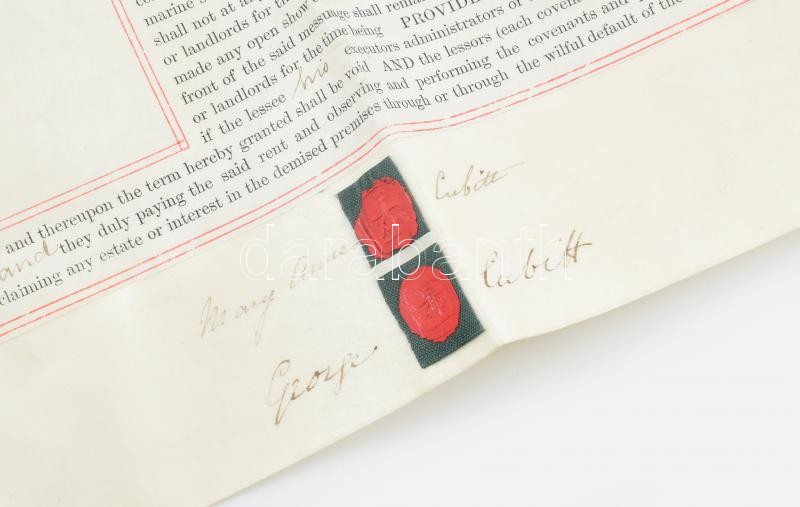 marine s
shall not at any
or landlords for th
made any open show
front of the said message shall remain
or landlords for the time being PROVIDE
if the lessee his executors administrators or
and thereupon the term hereby granted shall be void AND the lessors (each covena
and they duly paying the said rent and observing and performing the covenants and
claiming any estate or interest in the demised premises through or through the wilful default of the
Mary Anne Cubitt
George Cubitt
darabanth